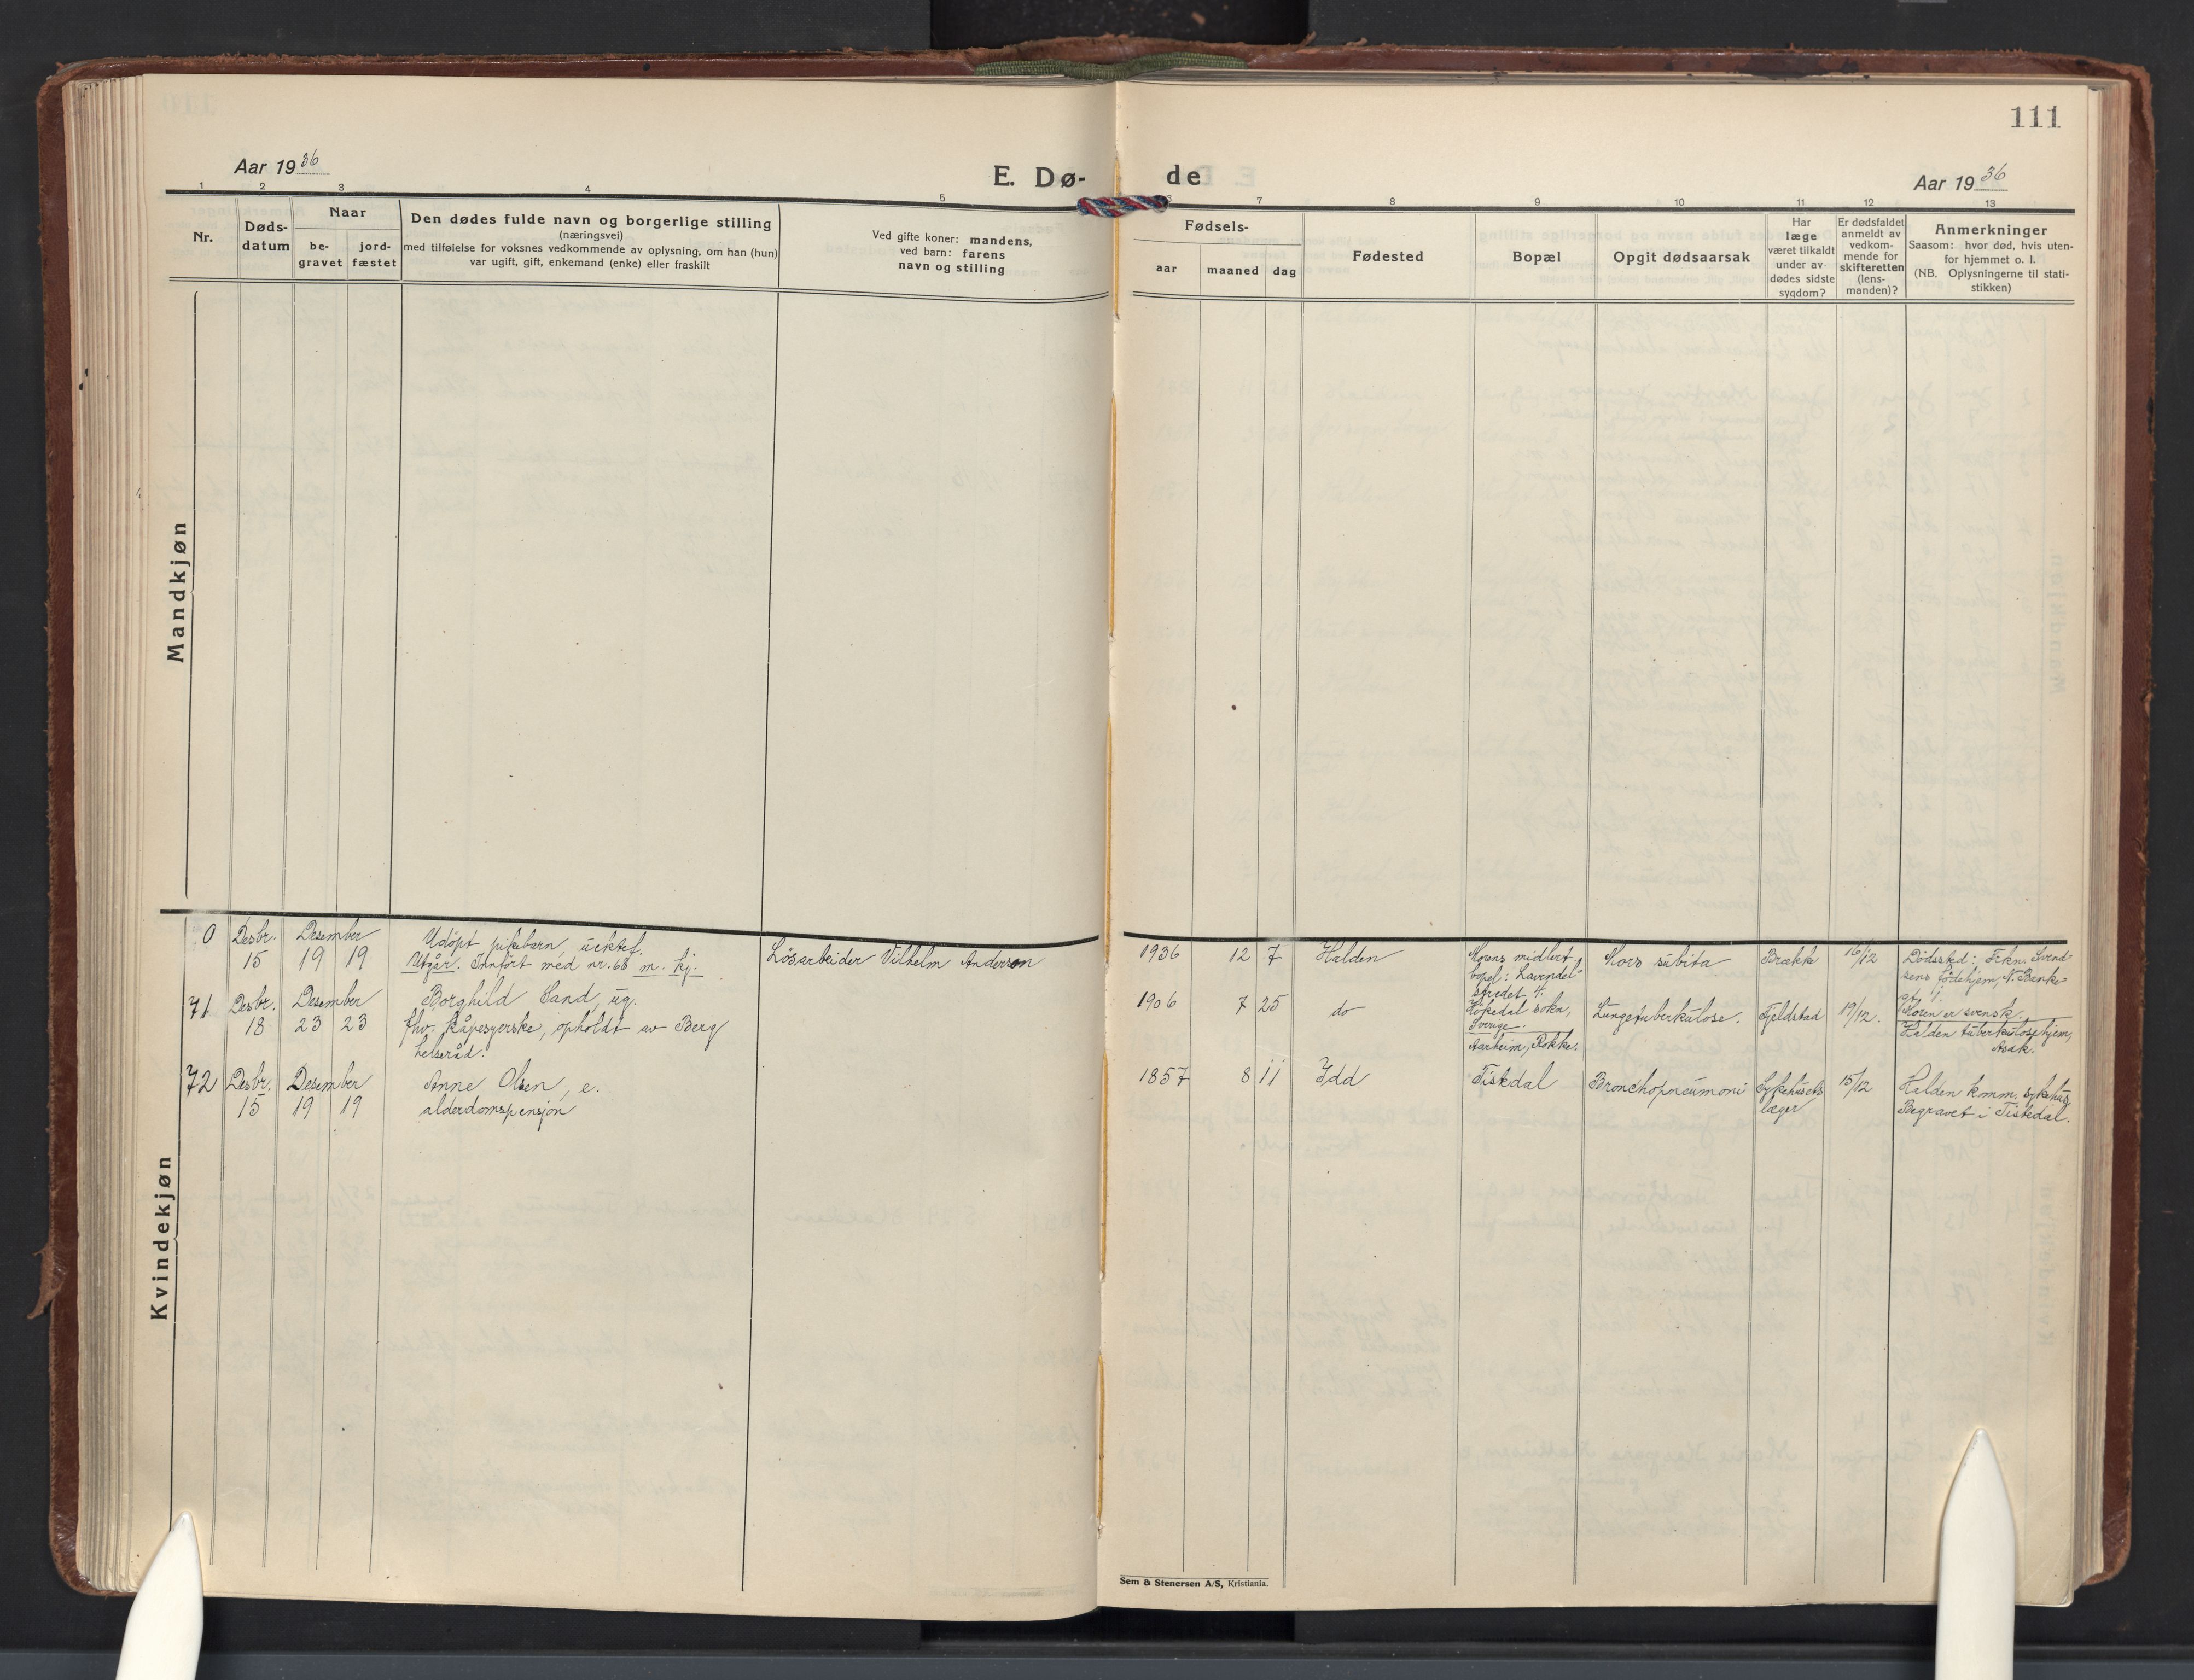 111
Aar 1936
E. Dø-
de
Aar 1936
1 2 3 4 5 6 7 8 9 10 11 12 13
Nr.
Døds-
datum
Naar
be-
gravet
jord-
fæstet
Den dødes fulde navn og borgerlige stilling
(næringsvei)
med tilføielse for voksnes vedkommende av oplysning, om han (hun)
var ugift, gift, enkemand (enke) eller fraskilt
Ved gifte koner: mandens,
ved barn: farens
navn og stilling
Fødsels-
aar
maaned
dag
Fødested
Bopæl
Opgit dødsaarsak
Har
læge
været tilkaldt
under av-
dødes sidste
sygdom?
Er dødsfaldet
anmeldt av
vedkom-
mende for
skifteretten
(lens-
manden)?
Anmerkninger
Saasom: hvor død, hvis uten-
for hjemmet o. l.
(NB. Oplysningerne til stati-
stikken)
Mandkjøn
Kvindekjøn
0
Desbr.
15
Desember
19 19
Udöpt pikebarn, uektef.
Utgår. Innført med nr. 68 m. kj.
Lösarbeider Vilhelm Anderson
1936 12 7
Halden
Morens midlert.
bopel: Lavendel-
stredet 4.
Hökedal sokn,
Sverige.
Mors subita
Brække
16/12
Dödssted: Frkn. Svend-
sens födehjem, N. Banke-
gt. 1.
Moren er svensk.
71
Desbr.
18
Desember
23 23
Borghild Sand, ug.
fhv. kåpesyerske, opholdt av Berg
helseråd.
1906 7 25
do
Aarheim, Rokke.
Lungetuberkulose.
Fjeldstad
19/12.
Halden tuberkulosehjem,
Asak.
72
Desbr.
15
Desember
19 19
Anne Olsen, e.
alderdomspensjon
1857 8 11
Idd
Tistedal
Bronchopneumoni
Sykehusets
læger
15/12
Halden komm. sykehus
Begravet i Tistedal.
Sem & Stenersen A/S, Kristiania.